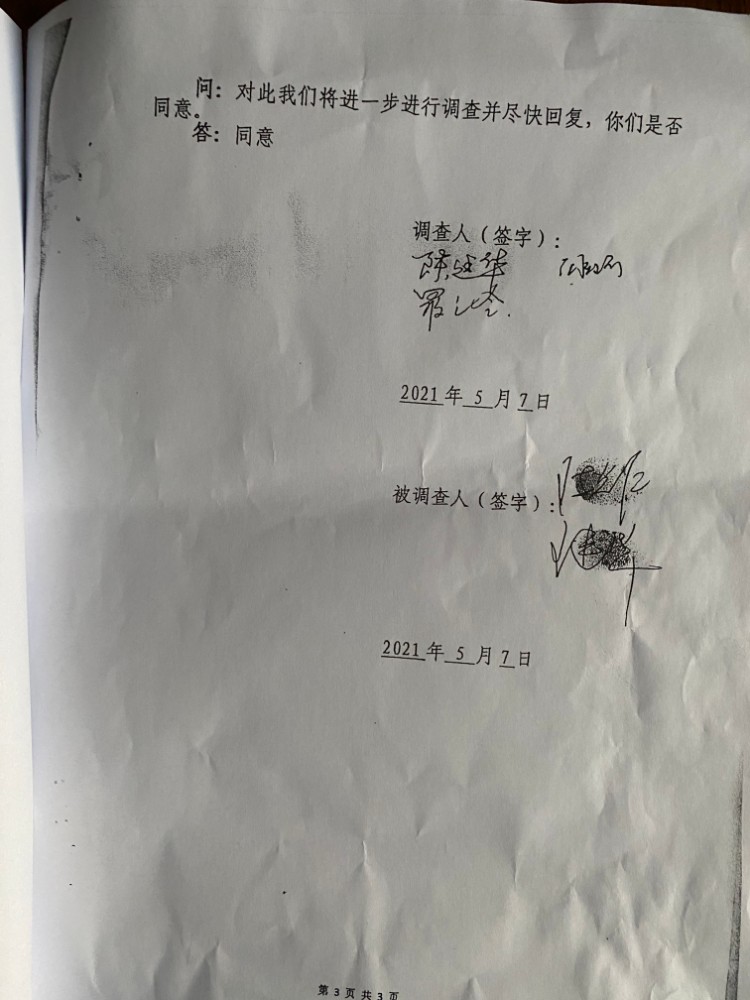 问：对此我们将进一步进行调查并尽快回复，你们是否
同意。
答：同意
调查人（签字）：
2021年 5 月 7 日
被调查人（签字）：
2021年 5 月 7 日
第 3 页 共 3 页